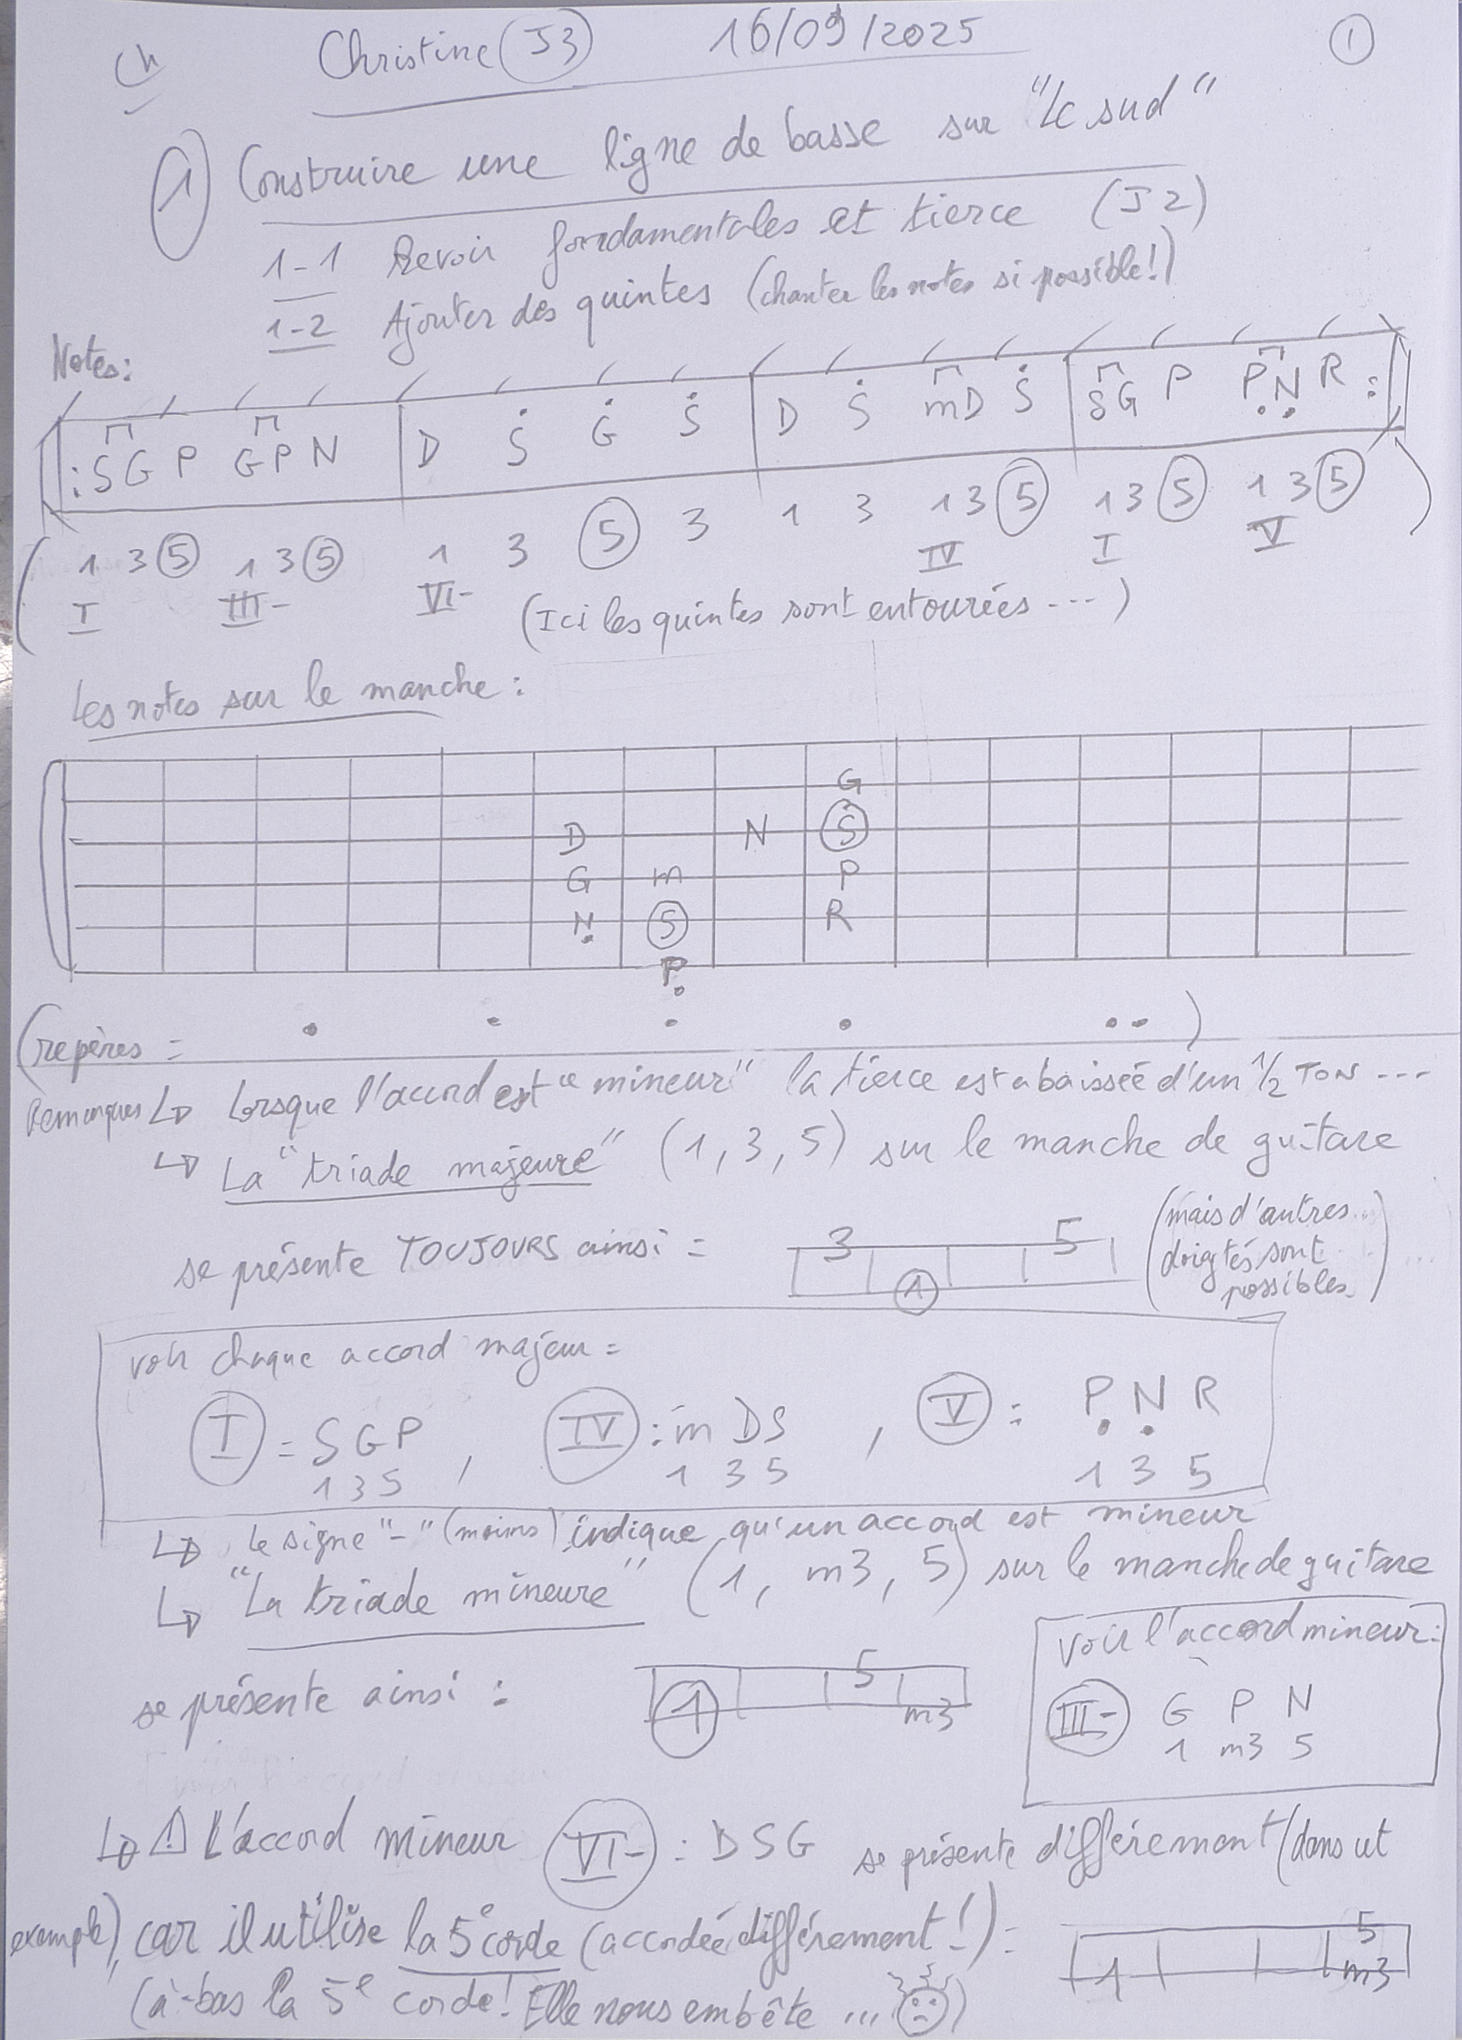 Ch Christine (J3) 16/09/2025 1
1 Construire une ligne de basse sur "Le sud"
1-1 Revoir fondamentales et tierce (J2)
1-2 Ajouter des quintes (chanter les notes si possible!)
Notes:
:S G P G P N | D Ṡ Ġ Ṡ | D Ṡ m D Ṡ | S G P P̣ Ṇ R :
( 1 3 5 1 3 5 1 3 5 3 1 3 1 3 5 1 3 5 1 3 5 )
I III- VI- IV I V
(Ici les quintes sont entourées ...)
Les notes sur le manche :
G
D N Ṡ
G m P
Ṇ S R
P̣
(repères = )
Remarques ↳ Lorsque l'accord est "mineur" la tierce est abaissée d'un 1/2 TON ...
↳ La "triade majeure" (1, 3, 5) sur le manche de guitare
se présente TOUJOURS ainsi = 3 5
1
(mais d'autres
doigtés sont
possibles.)
voir chaque accord majeur =
I = S G P , IV : m D S , V : P̣ Ṇ R
1 3 5 1 3 5 1 3 5
↳ Le signe "-" (moins) indique qu'un accord est mineur
↳ "La triade mineure" (1, m3, 5) sur le manche de guitare
se présente ainsi : 5
1 m3
voir l'accord mineur :
III- G P N
1 m3 5
↳ ⚠ L'accord mineur VI- : D S G se présente différemment (dans cet
exemple), car il utilise la 5e corde (accordée différemment !) = 5
1 m3
(à-bas la 5e corde ! Elle nous embête ... )